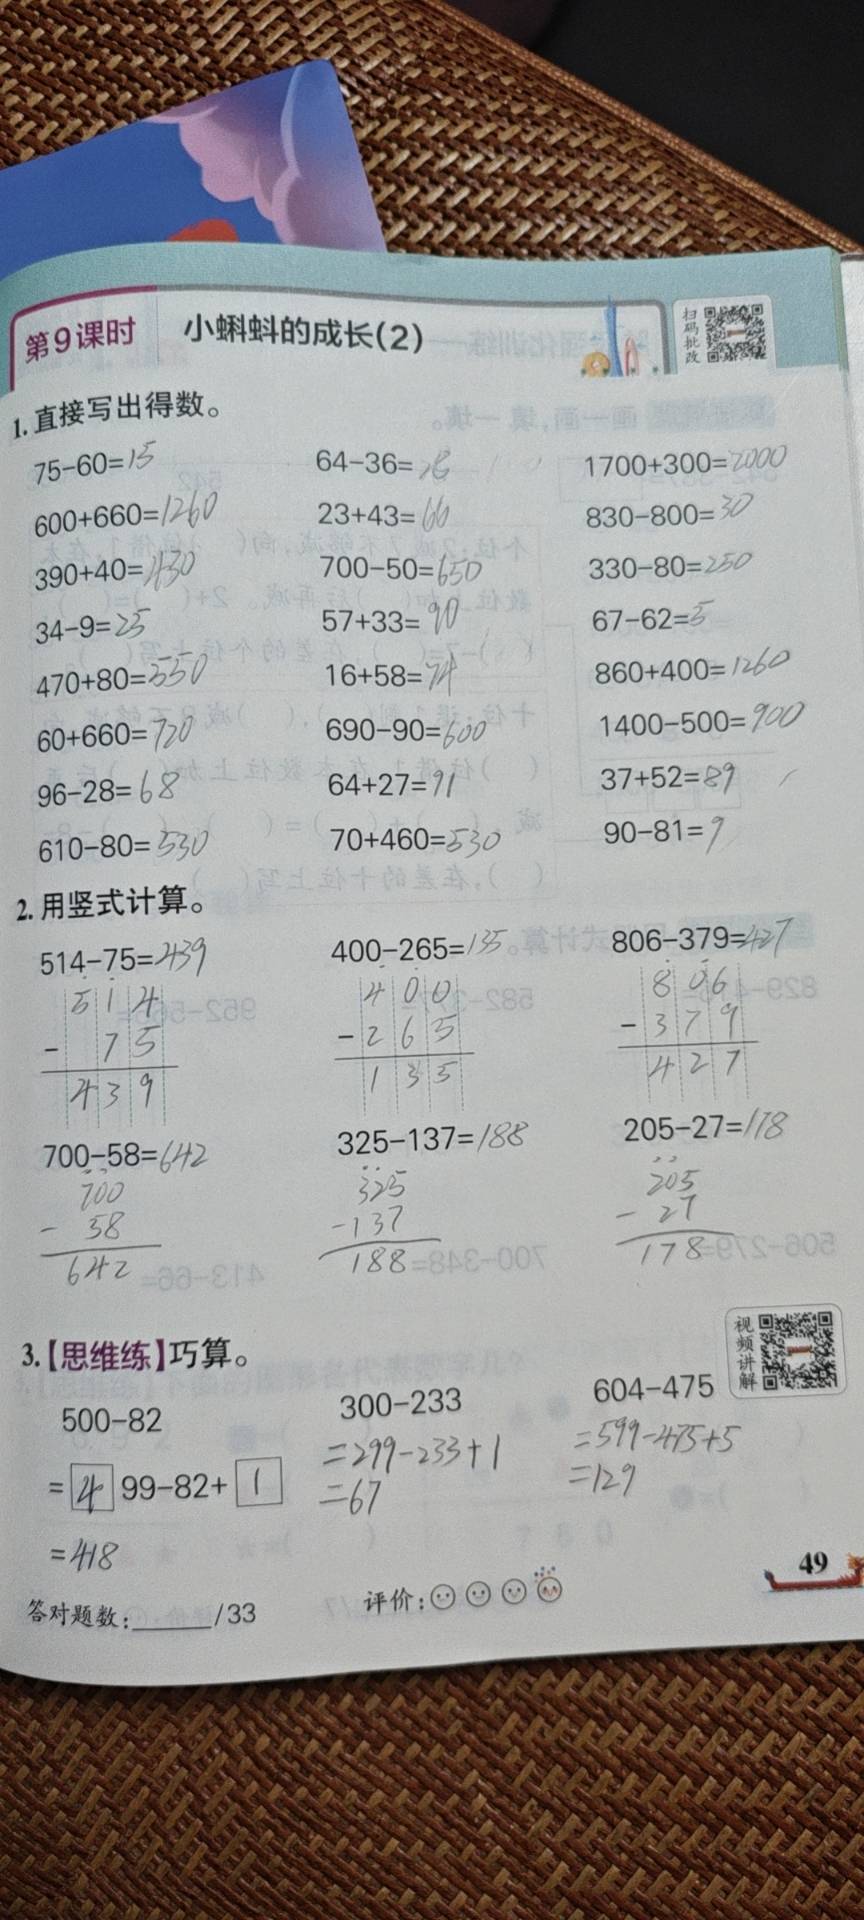 第9课时 小蝌蚪的成长(2)
扫码批改
1.直接写出得数。
75-60=15 64-36=28 1700+300=2000
600+660=1260 23+43=66 830-800=30
390+40=430 700-50=650 330-80=250
34-9=25 57+33=90 67-62=5
470+80=550 16+58=74 860+400=1260
60+660=720 690-90=600 1400-500=900
96-28=68 64+27=91 37+52=89
610-80=530 70+460=530 90-81=9
2.用竖式计算。
514-75=439 400-265=135 806-379=427
514 400 806
- 75 -265 -379
439 135 427
700-58=642 325-137=188 205-27=178
700 325 205
- 58 -137 - 27
642 188 178
3.【思维练】巧算。
视频讲解
500-82 300-233 604-475
=499-82+1 =299-233+1 =599-475+5
=418 =67 =129
答对题数:______/33 评价:
49